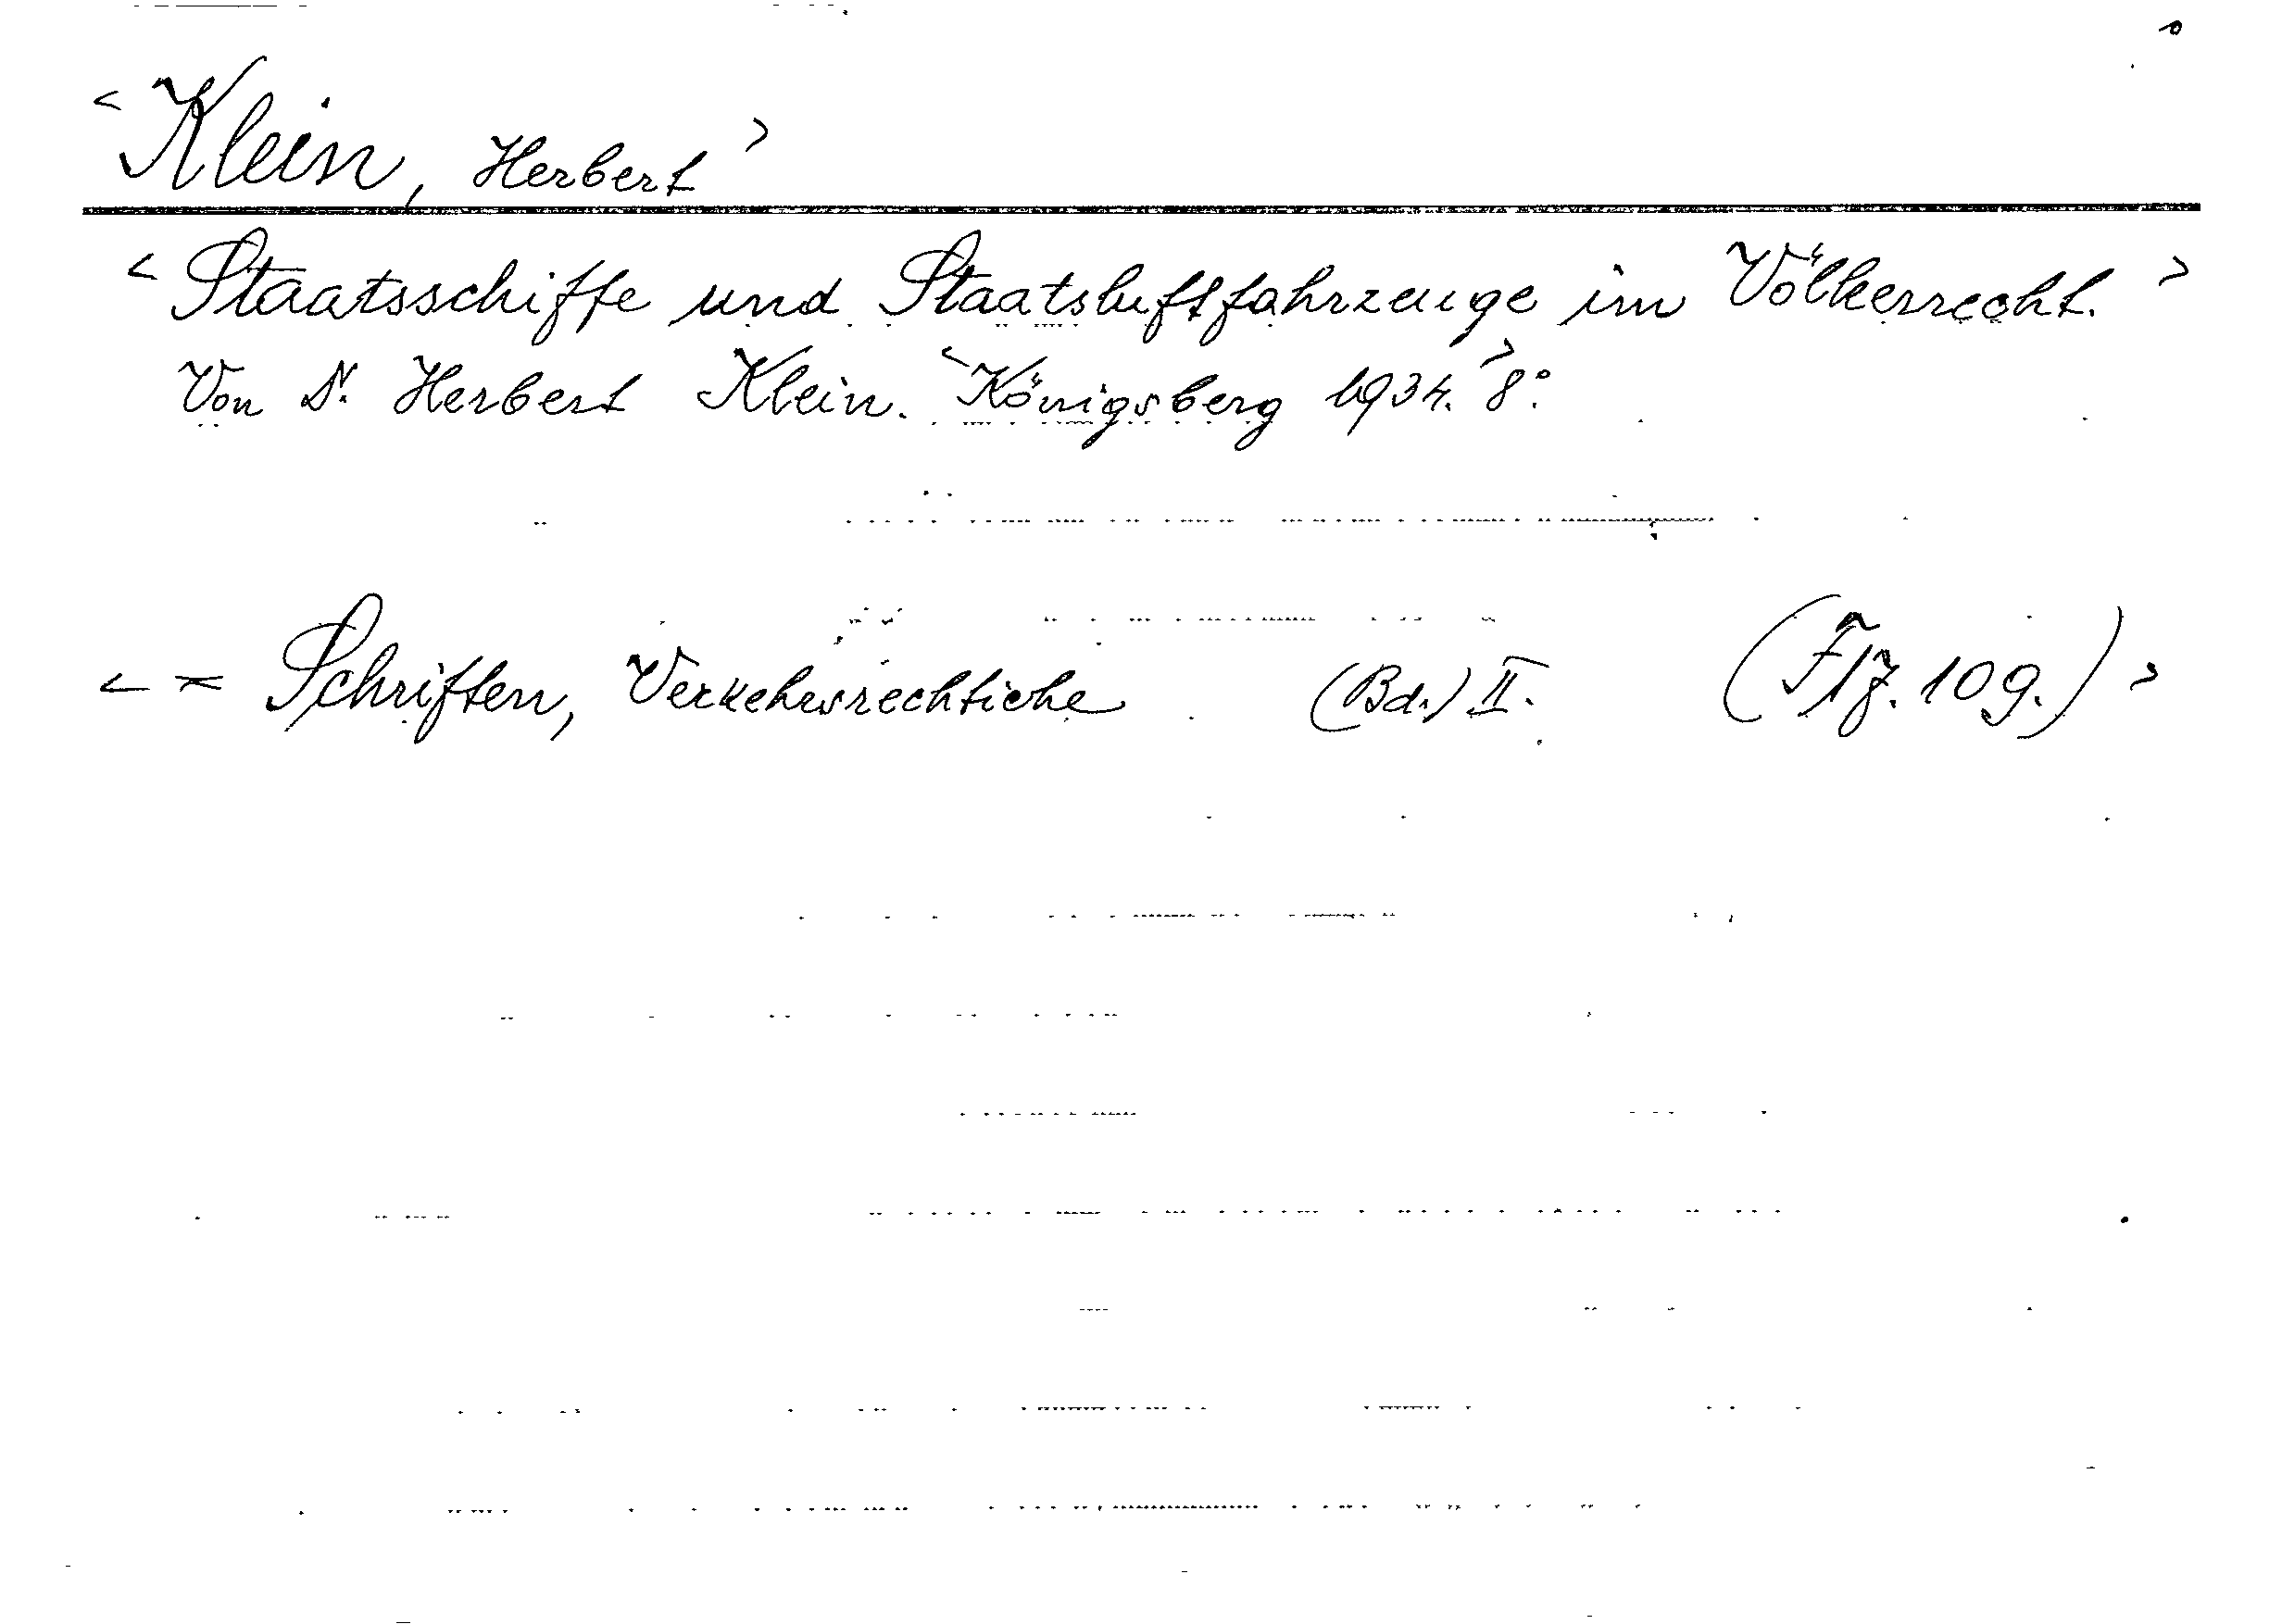 < Klein, Herbert >
< Staatsschiffe und Staatsluftfahrzeuge im Völkerrecht. >
Von Dr. Herbert Klein. < Königsberg 1934. > 8°.
< = Schriften, Verkehrsrechtliche (Bd.) II. (Flz. 109.) >